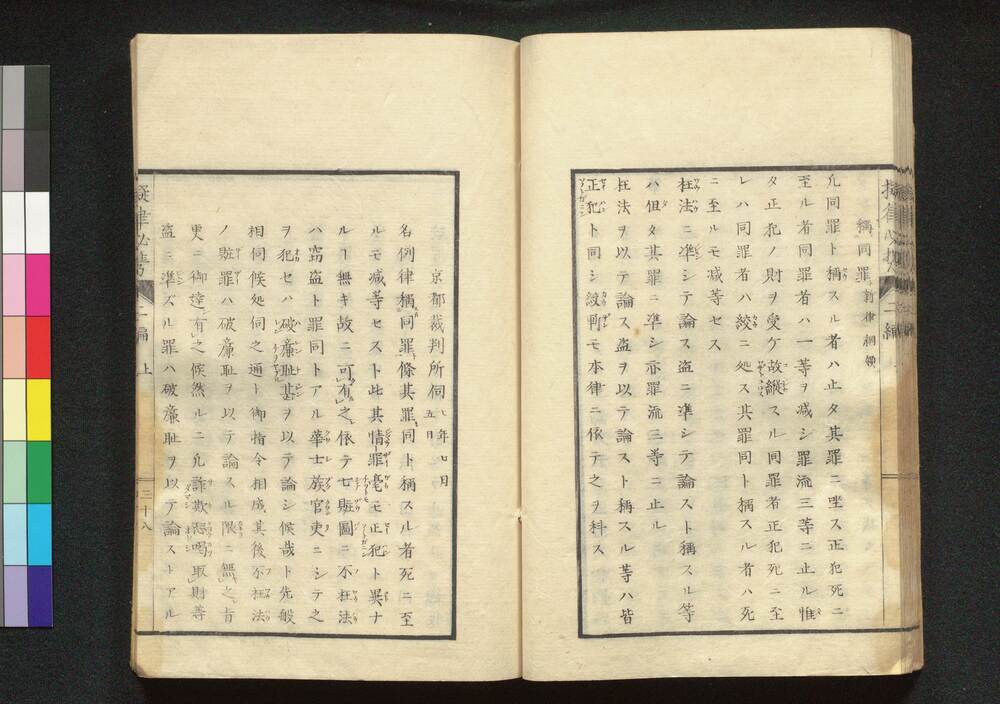 稱同罪 新律綱領
凡同罪ト稱スル者ハ止タ其罪ニ坐ス正犯死ニ
至ル者同罪者ハ一等ヲ减シ罪流三等ニ止ル惟
タ正犯ノ財ヲ受ケ故縱スル同罪者正犯死ニ至
レハ同罪者ハ絞ニ処ス其罪同ト稱スル者ハ死
ニ至ルモ减等セス
枉法ニ凖シテ論ス盗ニ凖シテ論スト稱スル等
ハ但タ其罪ニ凖シ亦罪流三等ニ止ル
枉法ヲ以テ論ス盗ヲ以テ論スト稱スル等ハ皆
正犯ト同シ絞斬モ本律ニ依テ之ヲ科ス
擬律必携 二編 上
京都裁判所伺 八年七月五日
名例律稱同罪條其罪同ト稱スル者死ニ至
ルモ减等セスト此其情罪毫モ正犯ト異ナ
ルヿ無キ故ニ可有之依テ七贓圖ニ不枉法
ハ窃盗ト罪同トアル華士族官吏ニシテ之
ヲ犯セハ破廉耻甚ヲ以テ論シ候哉ト先般
相伺候処伺之通ト御指令相成其後不枉法
ノ贓罪ハ破廉耻ヲ以テ論スル限ニ無之旨
更ニ御達有之候然ルニ凡詐欺恐喝取財等
盗ニ凖ズル罪ハ破廉耻ヲ以テ論ストアル
擬律必携 二編 上 三十八